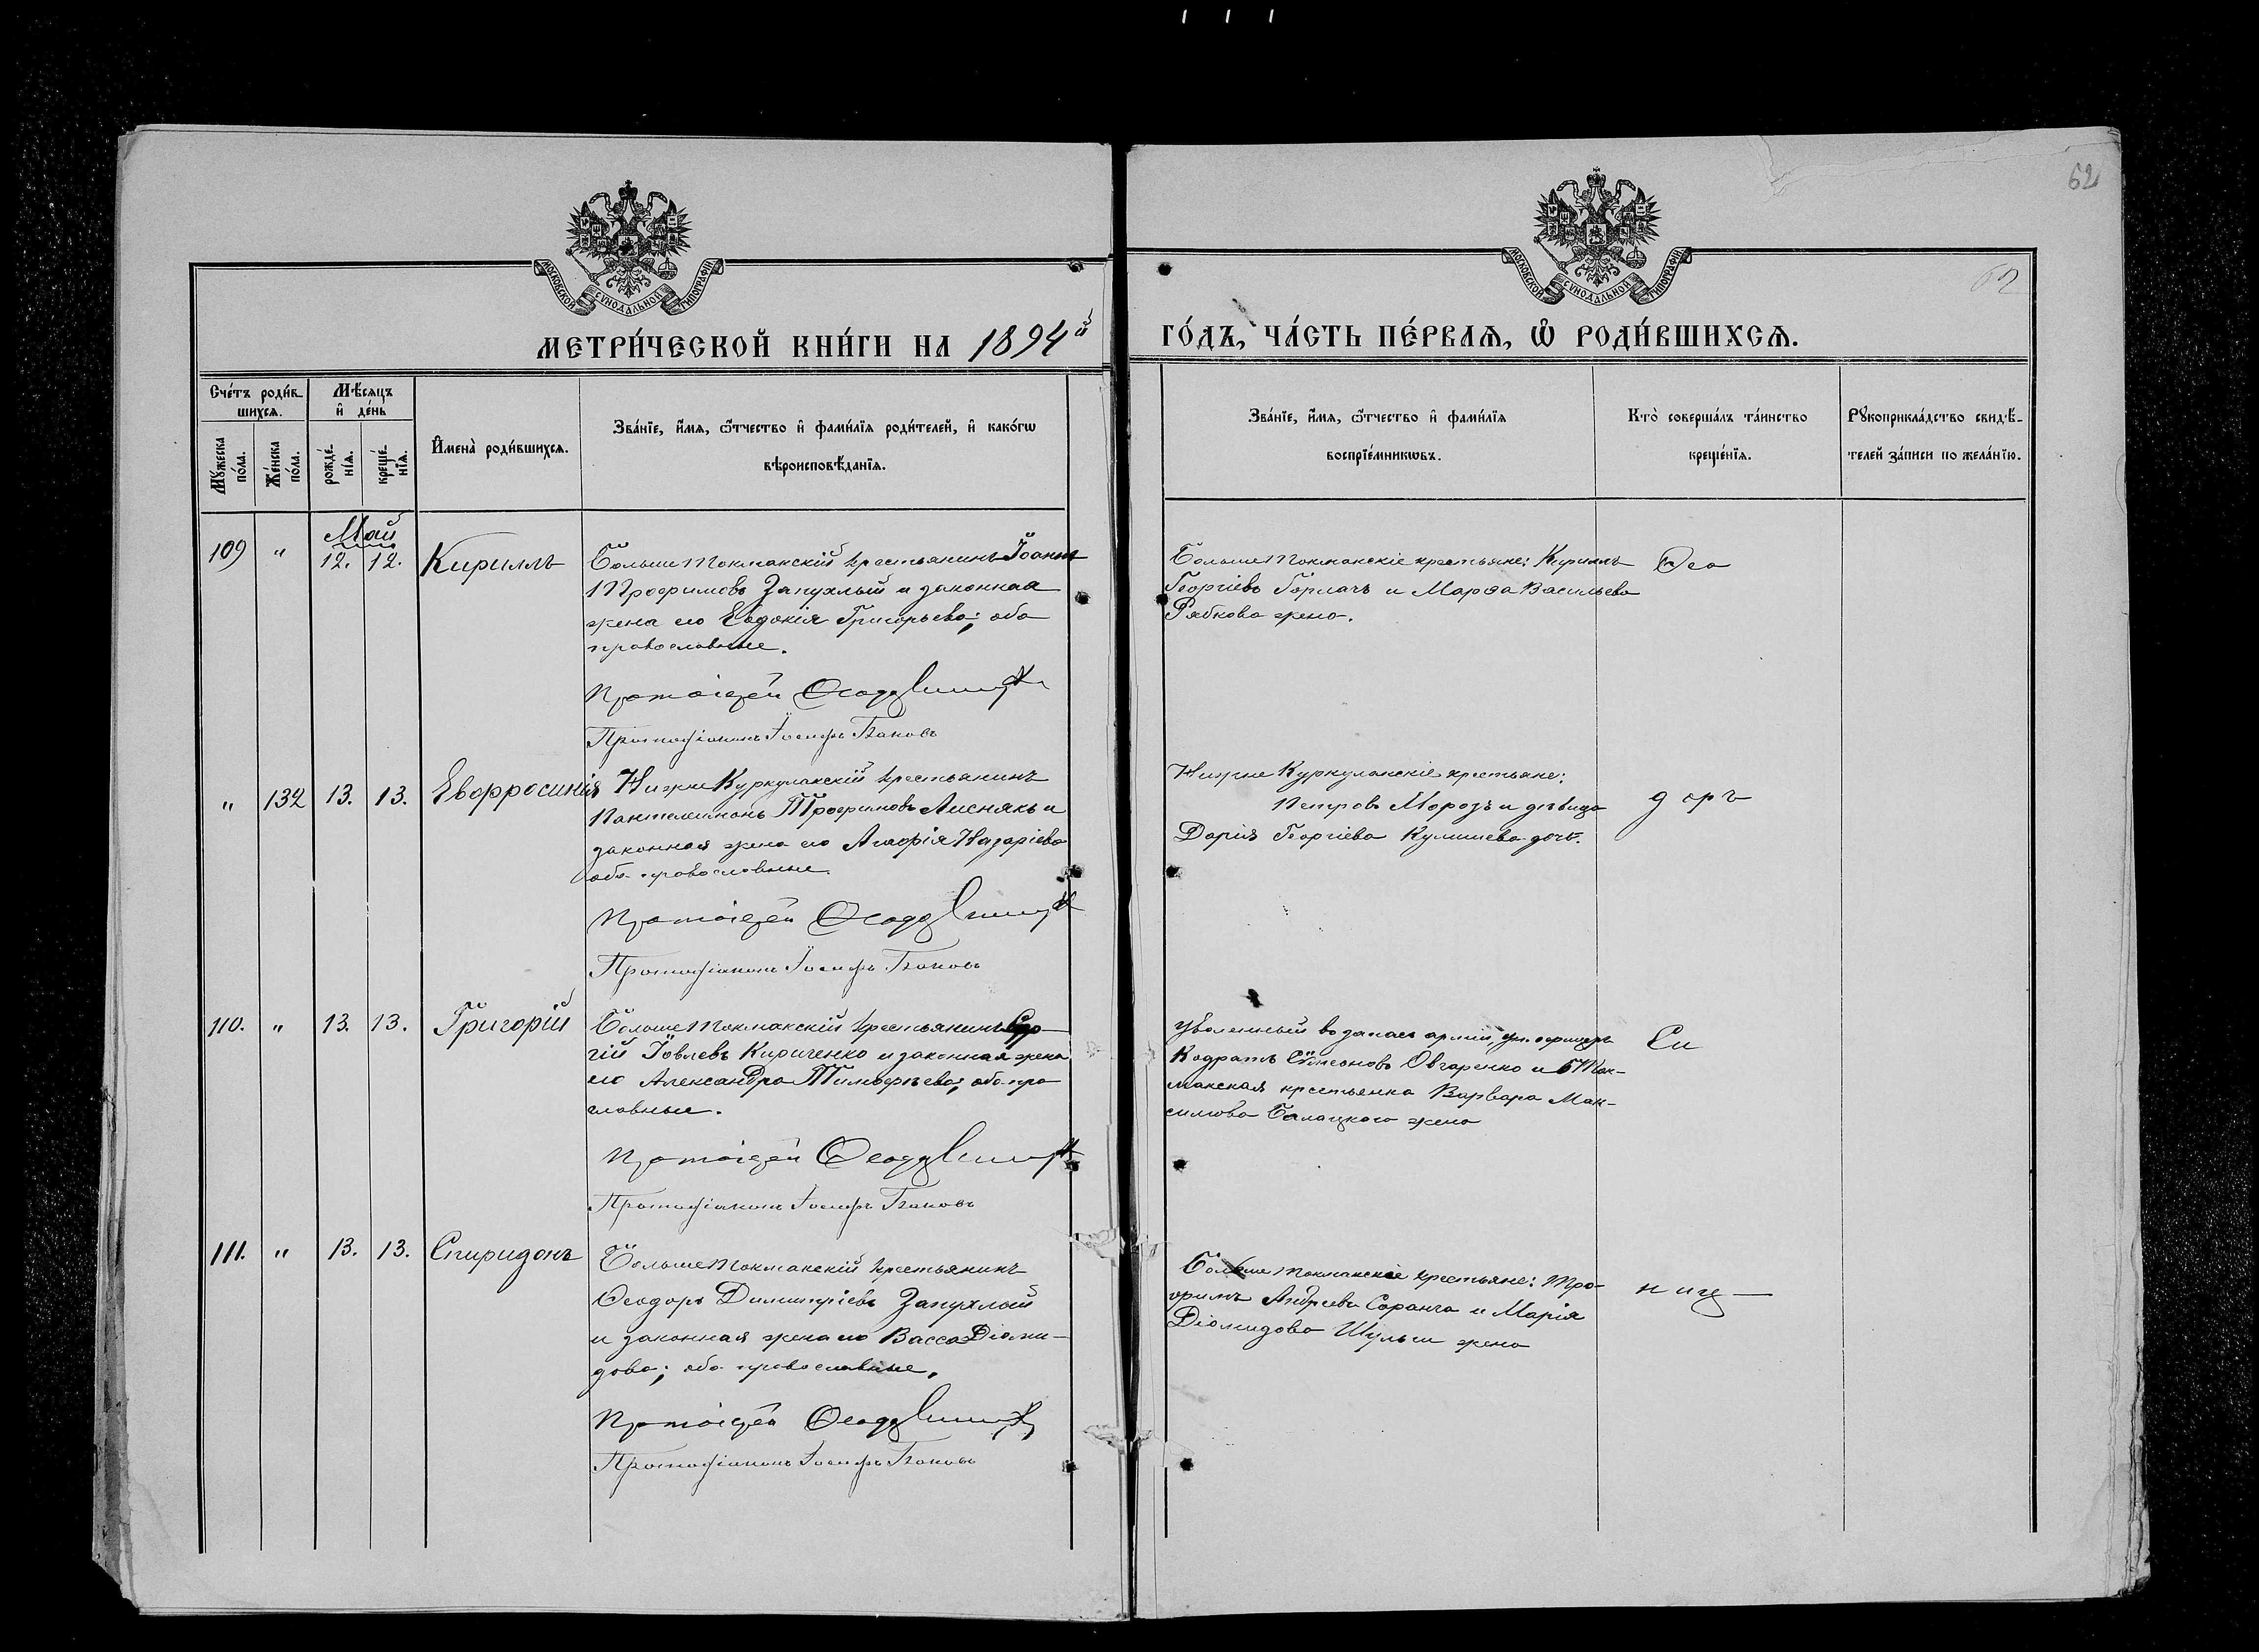 62
62
МОСКОВСКОЙ СѴНОДАЛЬНОЙ ТИПОГРАФІИ
МОСКОВСКОЙ СѴНОДАЛЬНОЙ ТИПОГРАФІИ
МЕТРИ́ЧЕСКОЙ КНИ́ГИ НА 1894й
ГО́ДЪ, ЧА́СТЬ ПЕ́РВАѦ, Ѡ҆ РОДИ́ВШИХСѦ.
Сче́тъ роди́в-
шихсѧ.
Мѣ́сѧцъ
и҆ де́нь
Мꙋ́жеска по́ла.
Же́нска по́ла.
рожде́-
нїѧ.
креще́-
нїѧ.
И҆мена̀ роди́вшихсѧ.
Зва́нїе, и҆́мѧ, ѻ҆́тчество и҆ фами́лїѧ роди́телей, и҆ како́гѡ
вѣроисповѣ́данїѧ.
Зва́нїе, и҆́мѧ, ѻ҆́тчество и҆ фами́лїѧ
воспрїе́мникѡвъ.
Кто̀ соверша́лъ та́инство
креще́нїѧ.
Рꙋкоприкла́дство свидѣ́-
телей за́писи по жела́нїю.
Май
109 " 12. 12. Кириллъ
Больше Токмакскій крестьянинъ Іоаннъ
Трофимовъ Запухлый и законная
жена его Евдокія Григорьева; оба
православные.
Протоіерей Ѳеодоръ
Протодіаконъ Іосифъ Баковъ
Больше Токмакскіе крестьяне: Кириллъ
Георгіевъ Горлачъ и Марѳа Васильева
Рябкова жена.
Ѳео
" 132 13. 13. Евфросинія
Нижне Куркулакскій крестьянинъ
Пантелеимонъ Трофимовъ Лиснякъ и
законная жена его Агафія Назаріева
оба православные.
Протоіерей Ѳеодоръ
Протодіаконъ Іосифъ Баковъ
Нижне Куркулакскіе крестьяне:
Петровъ Морозъ и дѣвица
Дарія Георгіева Кулишева дочь.
доръ
110. " 13. 13. Григорій
Больше Токмакскій крестьянинъ Сер-
гій Іовлевъ Кириченко и законная жена
его Александра Тимофѣева; оба пра
славные.
Протоіерей Ѳеодоръ
Протодіаконъ Іосифъ Баковъ
Уволенный въ запасъ арміи, ун. офицеръ
Кодратъ Симеоновъ Овчаренко и Б Ток-
макская крестьянка Варвара Мак-
симова Балацкого жена
Си
111. " 13. 13. Спиридонъ
Больше Токмакскій крестьянинъ
Ѳеодоръ Димитріевъ Запухлый
и законная жена его Васса Діоми-
дова; оба православные.
Протоіерей Ѳеодоръ
Протодіаконъ Іосифъ Баковъ
Больше Токмакскіе крестьяне: Тро-
фимъ Андреевъ Саранча и Марія
Діомидова Шульги жена
ниц—